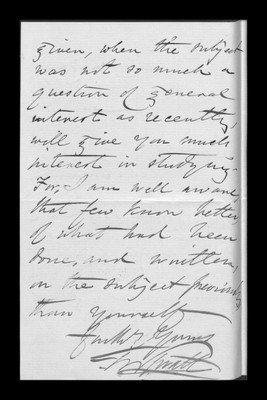 given, when the subject
was not so much a
question of general
interest as recently,
will give you much
interest in studying.
For, I am well aware
that few know better
of what had been
done, and written,
on the subject previously
than yourself
Yours